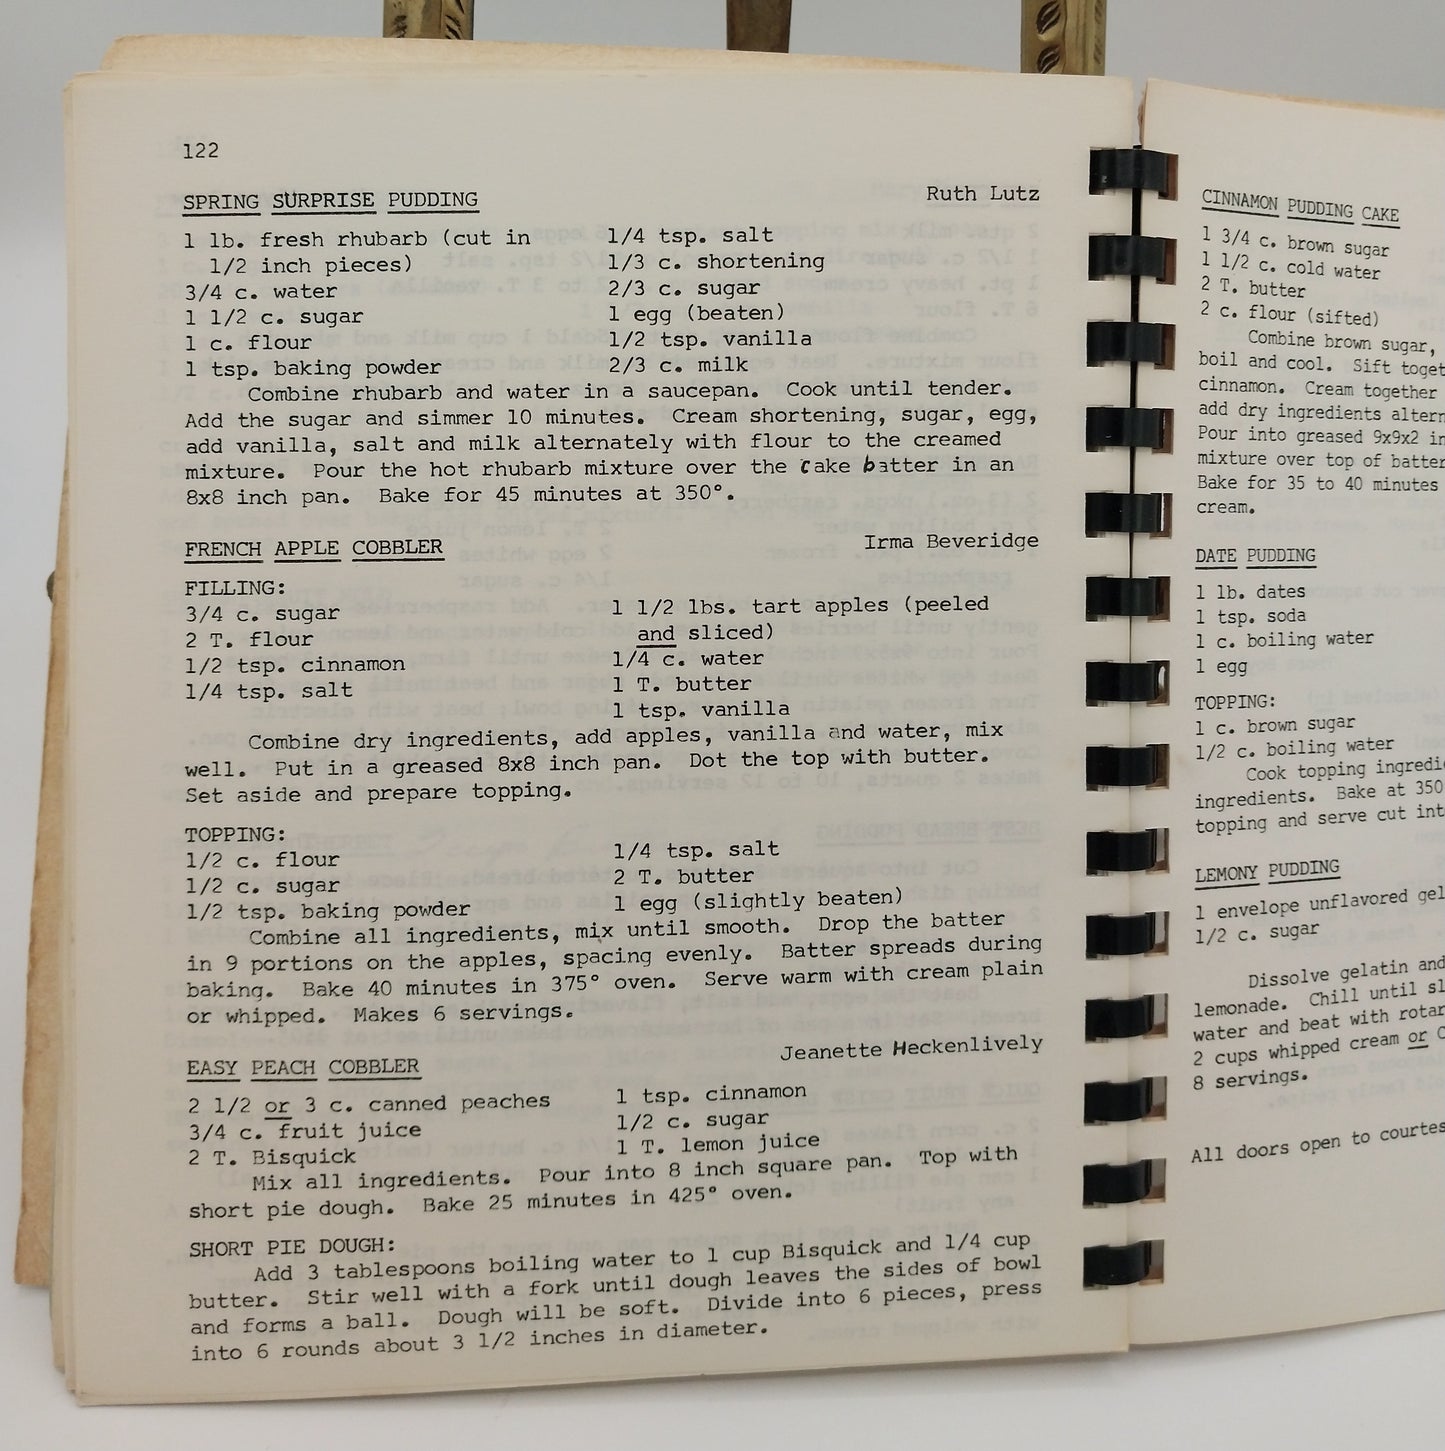 122
SPRING SURPRISE PUDDING Ruth Lutz
1 lb. fresh rhubarb (cut in 1/4 tsp. salt
1/2 inch pieces) 1/3 c. shortening
3/4 c. water 2/3 c. sugar
1 1/2 c. sugar 1 egg (beaten)
1 c. flour 1/2 tsp. vanilla
1 tsp. baking powder 2/3 c. milk
Combine rhubarb and water in a saucepan. Cook until tender.
Add the sugar and simmer 10 minutes. Cream shortening, sugar, egg,
add vanilla, salt and milk alternately with flour to the creamed
mixture. Pour the hot rhubarb mixture over the cake batter in an
8x8 inch pan. Bake for 45 minutes at 350°.
FRENCH APPLE COBBLER Irma Beveridge
FILLING:
3/4 c. sugar 1 1/2 lbs. tart apples (peeled
2 T. flour and sliced)
1/2 tsp. cinnamon 1/4 c. water
1/4 tsp. salt 1 T. butter
1 tsp. vanilla
Combine dry ingredients, add apples, vanilla and water, mix
well. Put in a greased 8x8 inch pan. Dot the top with butter.
Set aside and prepare topping.
TOPPING:
1/2 c. flour 1/4 tsp. salt
1/2 c. sugar 2 T. butter
1/2 tsp. baking powder 1 egg (slightly beaten)
Combine all ingredients, mix until smooth. Drop the batter
in 9 portions on the apples, spacing evenly. Batter spreads during
baking. Bake 40 minutes in 375° oven. Serve warm with cream plain
or whipped. Makes 6 servings.
EASY PEACH COBBLER Jeanette Heckenlively
2 1/2 or 3 c. canned peaches 1 tsp. cinnamon
3/4 c. fruit juice 1/2 c. sugar
2 T. Bisquick 1 T. lemon juice
Mix all ingredients. Pour into 8 inch square pan. Top with
short pie dough. Bake 25 minutes in 425° oven.
SHORT PIE DOUGH:
Add 3 tablespoons boiling water to 1 cup Bisquick and 1/4 cup
butter. Stir well with a fork until dough leaves the sides of bowl
and forms a ball. Dough will be soft. Divide into 6 pieces, press
into 6 rounds about 3 1/2 inches in diameter.
CINNAMON PUDDING CAKE
1 3/4 c. brown sugar
1 1/2 c. cold water
2 T. butter
2 c. flour (sifted)
Combine brown sugar,
boil and cool. Sift
cinnamon. Cream together
add dry ingredients
Pour into greased 9x9x2
mixture over top of batter
Bake for 35 to 40 minutes
cream.
DATE PUDDING
1 lb. dates
1 tsp. soda
1 c. boiling water
1 egg
TOPPING:
1 c. brown sugar
1/2 c. boiling water
Cook topping
ingredients. Bake at 350
topping and serve cut
LEMONY PUDDING
1 envelope unflavored
1/2 c. sugar
Dissolve gelatin and
lemonade. Chill until
water and beat with
2 cups whipped cream or
8 servings.
All doors open to